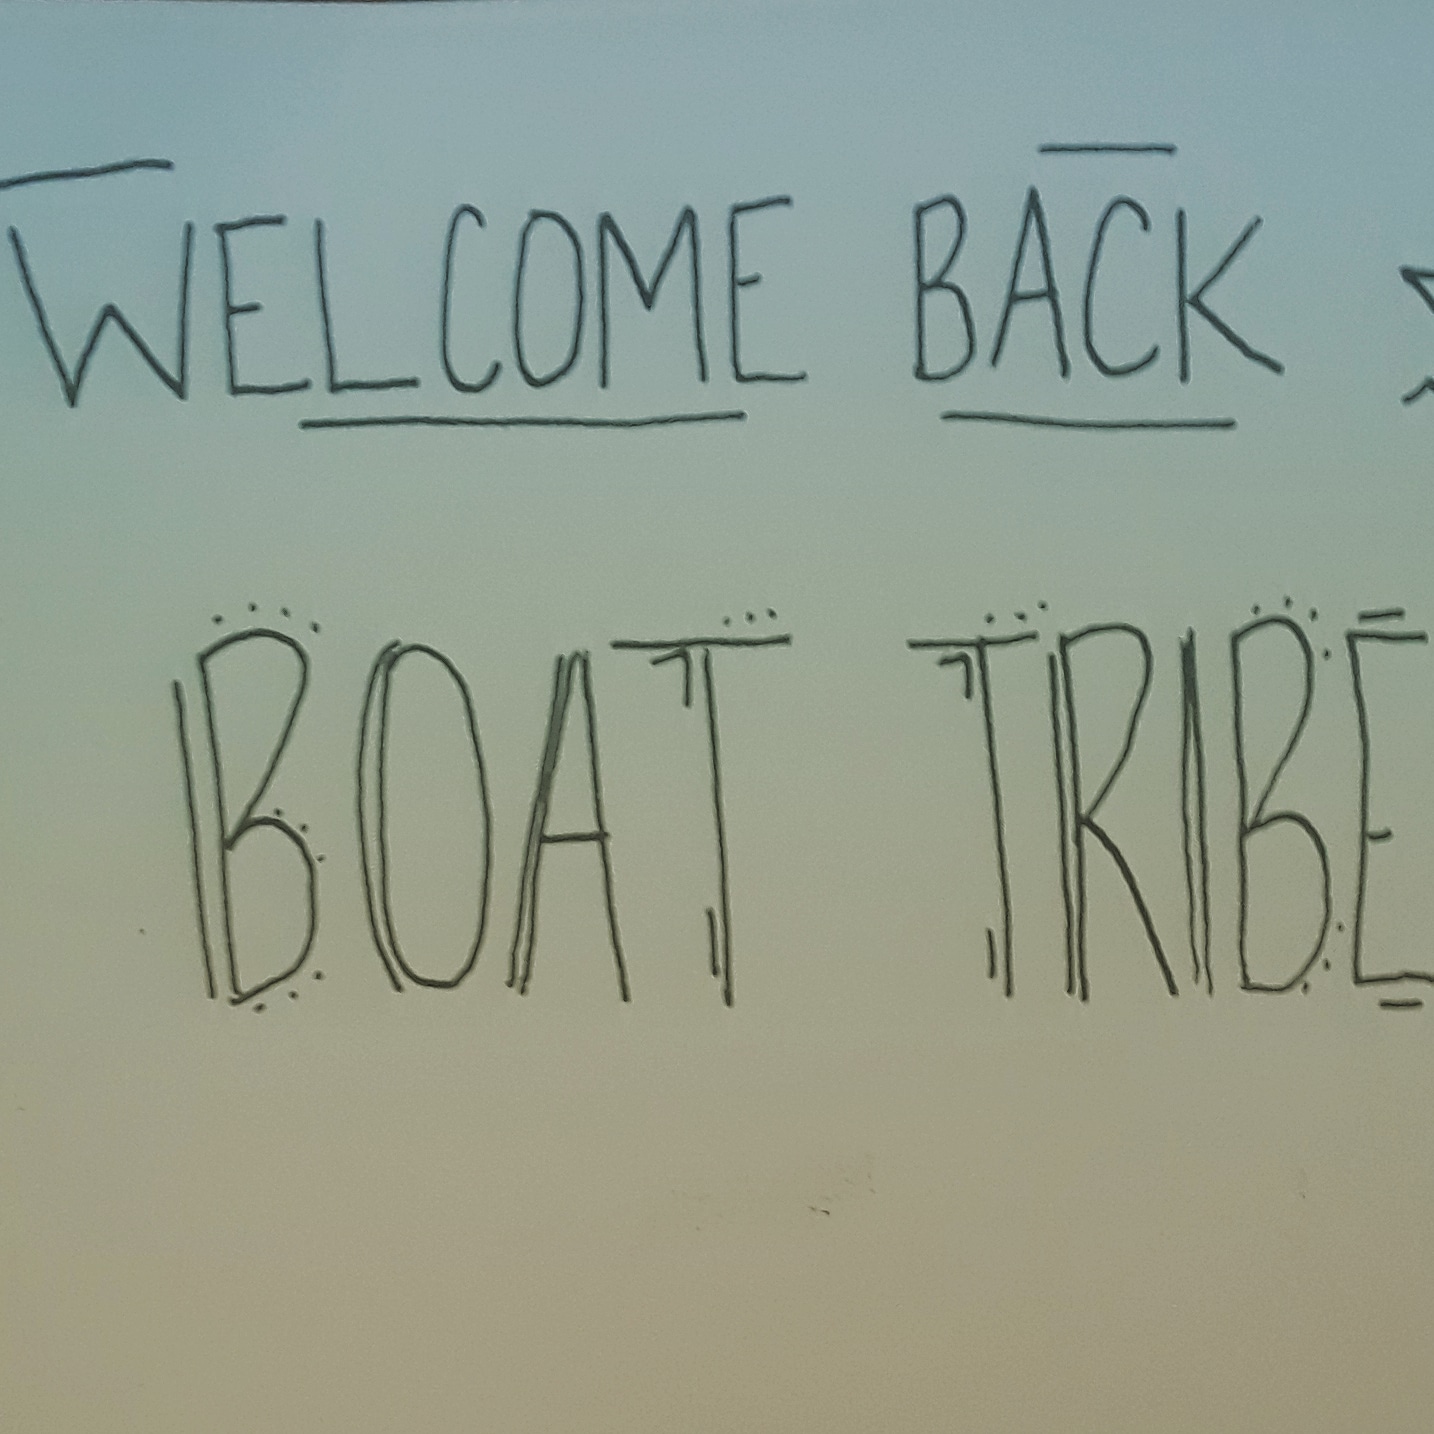 WELCOME BACK
BOAT TRIBE